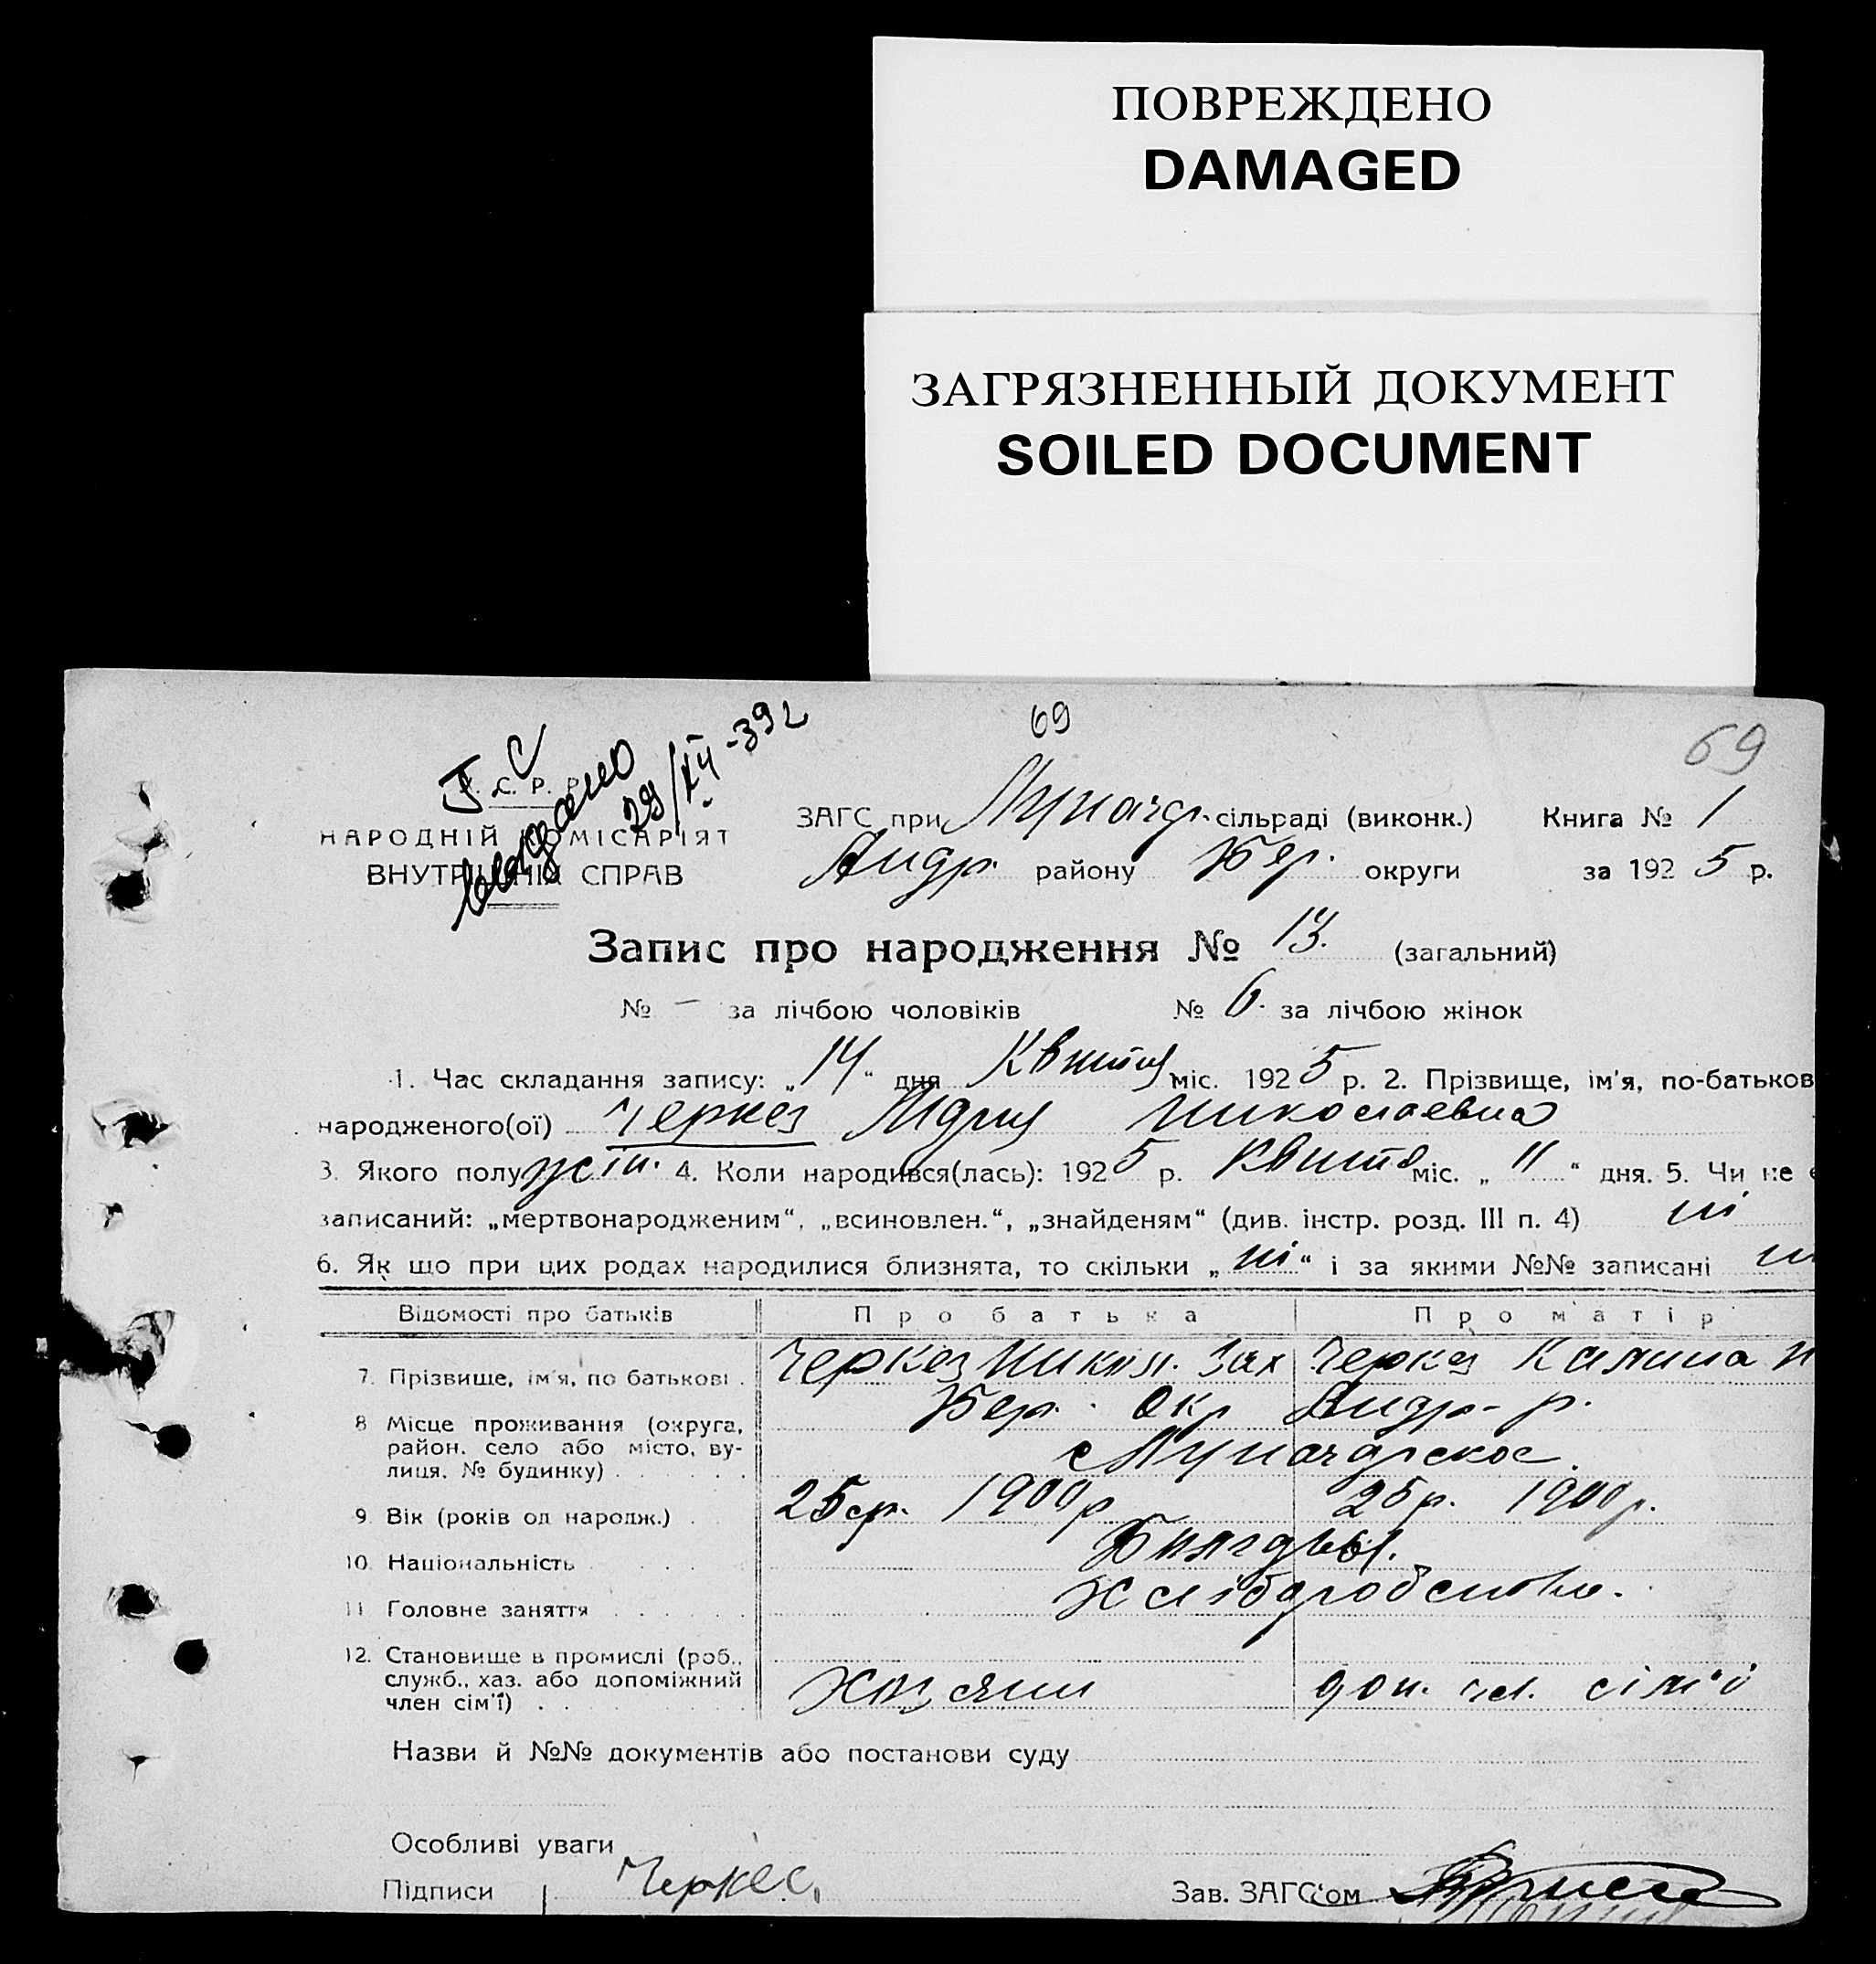 ПОВРЕЖДЕНО
DAMAGED
ЗАГРЯЗНЕННЫЙ ДОКУМЕНТ
SOILED DOCUMENT
69
69
С. Р. Р.
НАРОДНІЙ КОМІСАРІЯТ
ВНУТРІШНІХ СПРАВ
видано
29/XII-39 г
ЗАГС при Луначар. сільраді (виконк.) Книга № 1
Андр. району Бер. округи за 1925 р.
Запис про народження № 13. (загальний)
№ – за лічбою чоловіків № 6. за лічбою жінок
1. Час складання запису: „14“ дня Квітня міс. 1925 р. 2. Прізвище, ім'я, по-батьков
народженого(ої) Черкез Мария Николаевна
3. Якого полу жін. 4. Коли народився(лась): 1925 р. Квітня міс. „11“ дня. 5. Чи не є
записаний: „мертвонародженим“, „всиновлен.“, „знайденям“ (див. інстр. розд. III п. 4) ні
6. Як що при цих родах народилися близнята, то скільки „ні“ і за якими №№ записані ні
Відомості про батьків Про батька Про матір
7. Прізвище, ім'я, по батькові . Черкез Никол. Зах Черкез Калина Н
8 Місце проживання (округа, Бер. Окр Андр-р.
район, село або місто, ву- с Луначарское.
лиця, № будинку) . . . . . .
9. Вік (років од народж.) . 25 р. 1900 р 25 р. 1900 р.
10. Національність
11 Головне заняття . . . . . . Хліборобство.
12. Становище в промислі (роб.,
служб., хаз. або допоміжний Хозяин доп. чл. сім'ї
член сім'ї) . .
Назви й №№ документів або постанови суду
Особливі уваги
Підписи Черкес. Зав. ЗАГС'ом